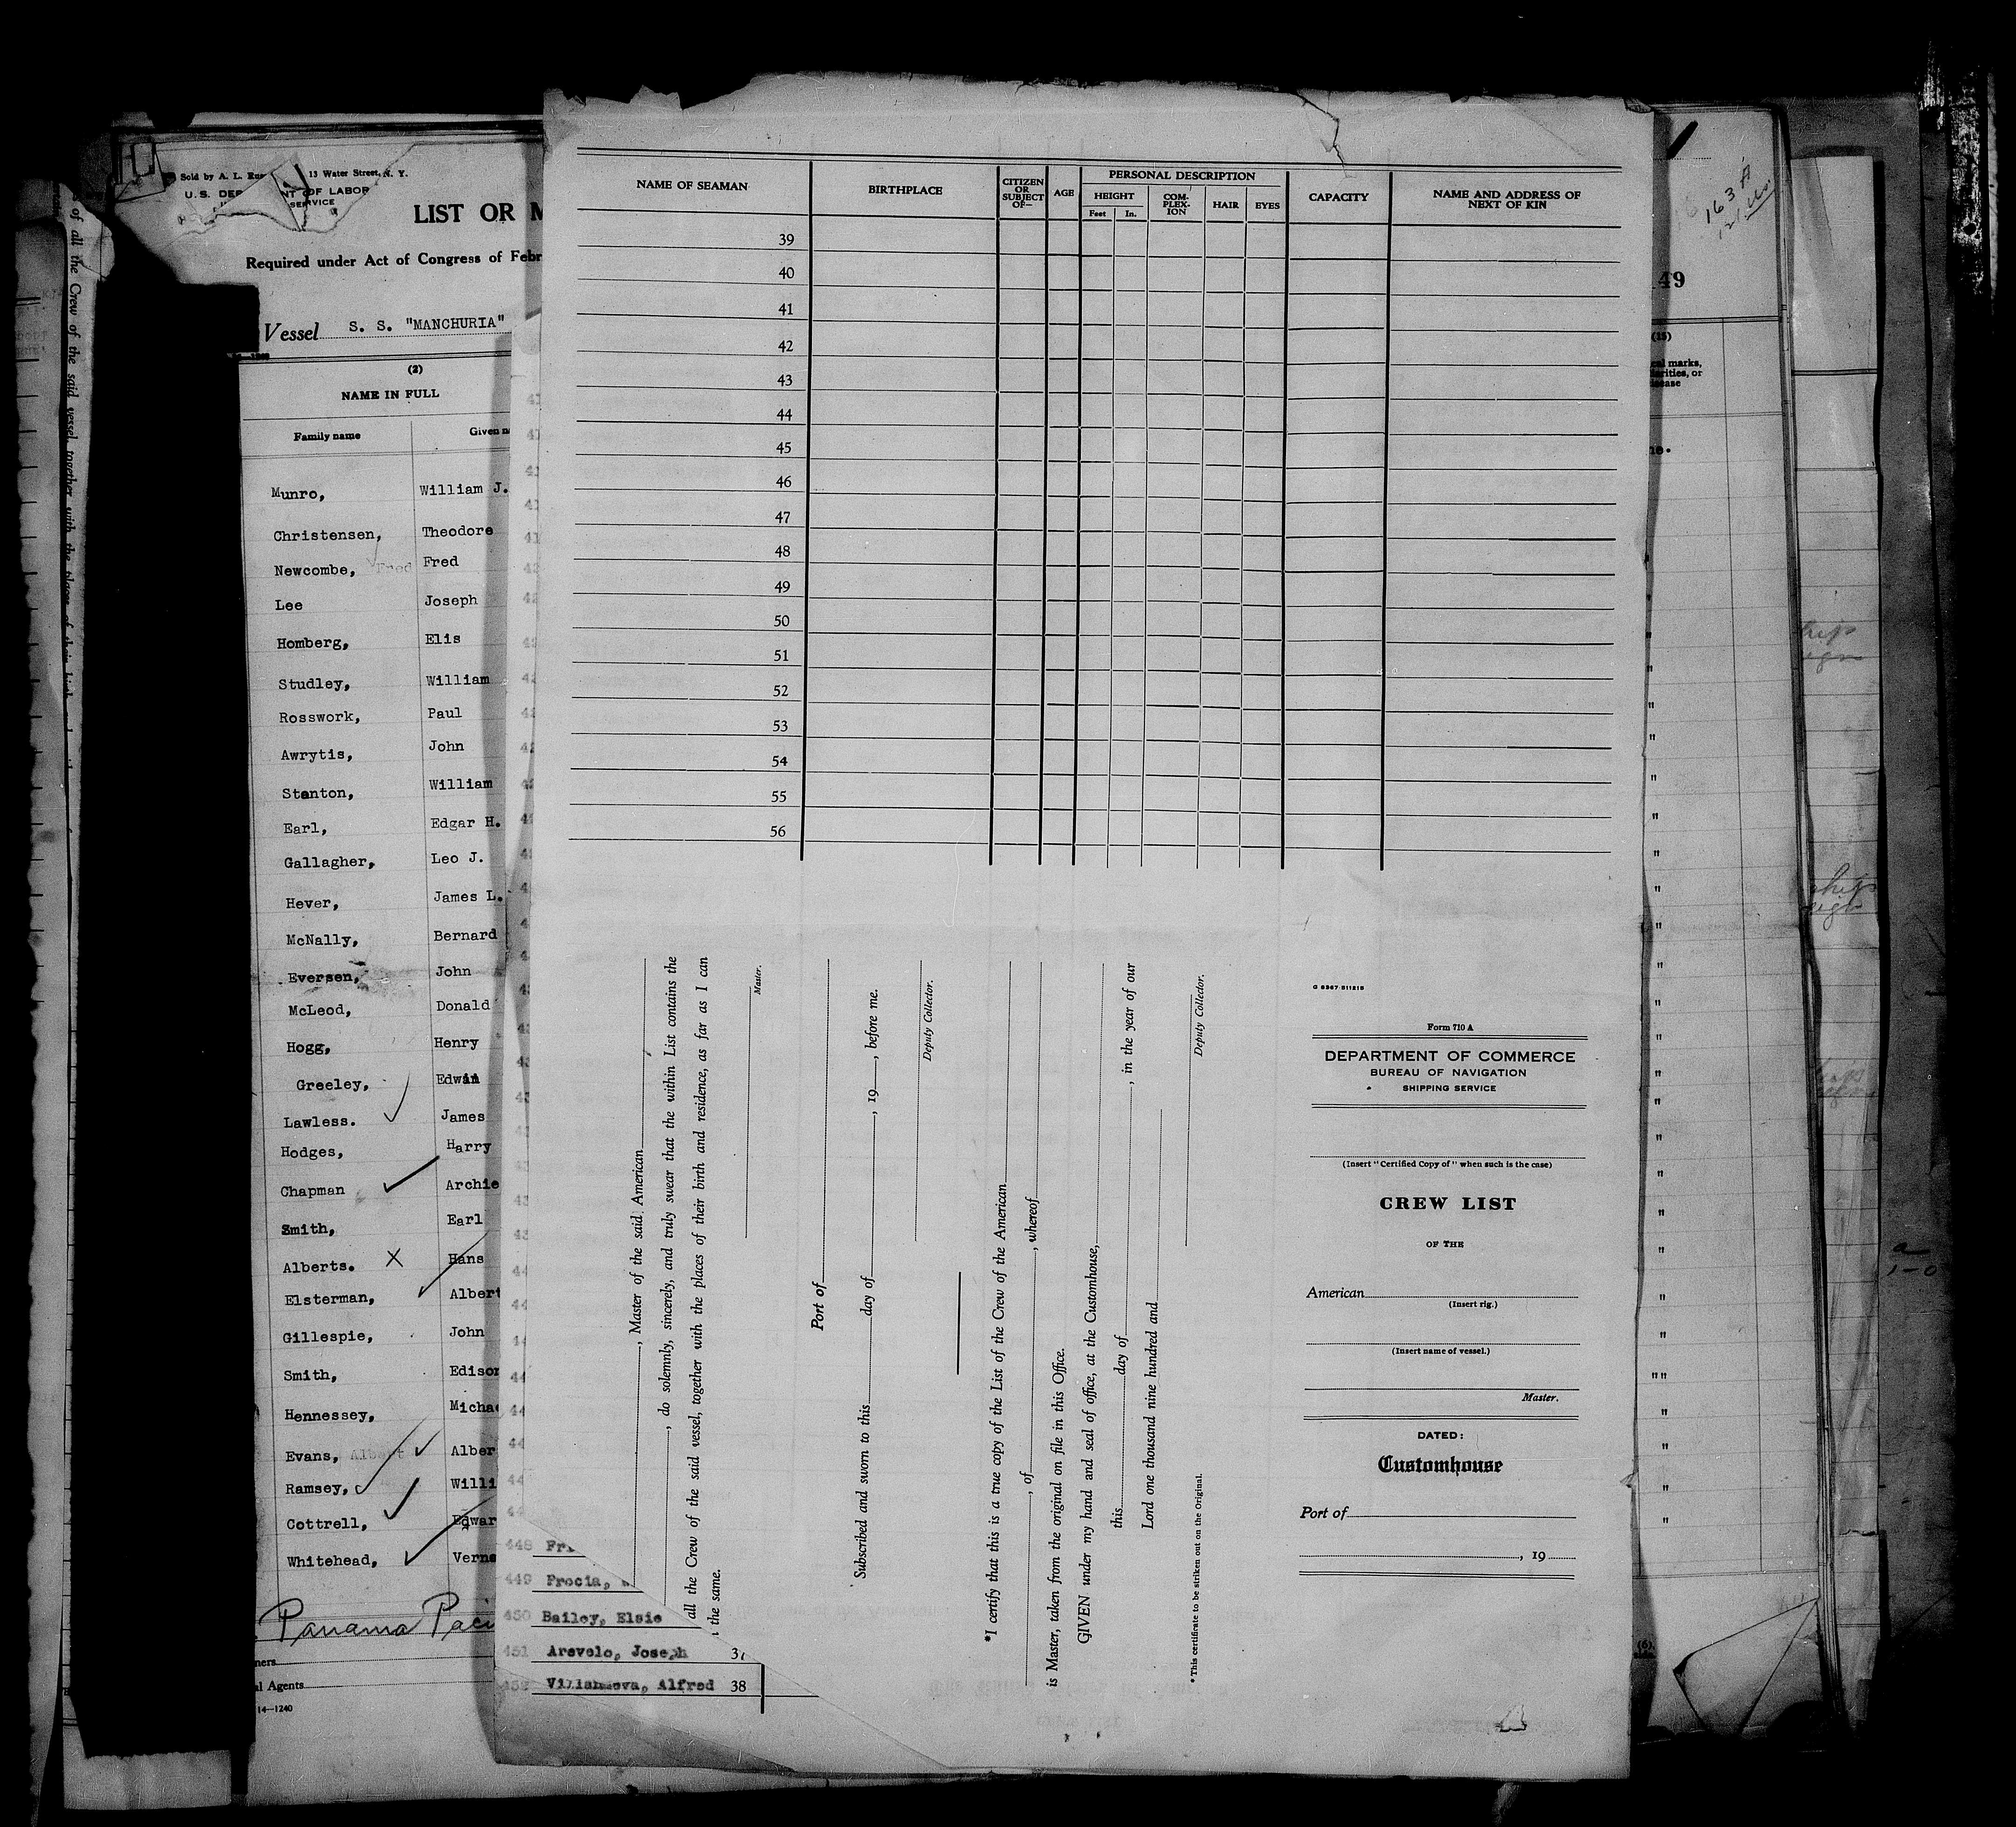 Sold by A. L.
13 Water Street, N. Y.
U. S.
OF LABOR
SERVICE
LIST OR
Required under Act of Congress of
Vessel S. S. "MANCHURIA"
(2)
NAME IN FULL
Family name Given
Munro, William J.
Christensen, Theodore
Newcombe, Fred Fred
Lee Joseph
Homberg, Elis
Studley, William
Rosswork, Paul
Awrytis, John
Stanton, William
Earl, Edgar H.
Gallagher, Leo J.
Hever, James L.
McNally, Bernard
Eversen, John
McLeod, Donald
Hogg, Henry
Greeley, Edwin
Lawless. James
Hodges, Harry
Chapman Archie
Smith, Earl
Alberts. X Hans
Elsterman, Albert
Gillespie, John
Smith, Edison
Hennessey,
Evans, Albert
Ramsey,
Cottrell,
Whitehead,
Panama
Agents
14—1240
NAME OF SEAMAN
BIRTHPLACE
CITIZEN OR SUBJECT OF—
AGE
PERSONAL DESCRIPTION
HEIGHT
Feet In.
COMPLEX-ION
HAIR
EYES
CAPACITY
NAME AND ADDRESS OF
NEXT OF KIN
39
40
41
42
43
44
45
46
47
48
49
50
51
52
53
54
55
56
, Master of the said American
, do solemnly, sincerely, and truly swear that the within List contains the
all the Crew of the said vessel, together with the places of their birth and residence, as far as I can
the same.
Master.
Port of
Subscribed and sworn to this day of , 19 , before me.
Deputy Collector.
*I certify that this is a true copy of the List of the Crew of the American
, of , whereof
is Master, taken from the original on file in this Office.
GIVEN under my hand and seal of office, at the Customhouse,
this day of , in the year of our
Lord one thousand nine hundred and
Deputy Collector.
*This certificate to be striken out on the Original.
Form 710 A
DEPARTMENT OF COMMERCE
BUREAU OF NAVIGATION
SHIPPING SERVICE
(Insert "Certified Copy of" when such is the case)
CREW LIST
OF THE
American
(Insert rig.)
(Insert name of vessel.)
Master.
DATED:
Customhouse
Port of
, 19
448
449 Frocia,
450 Bailey, Elsie
451 Arevelo, Joseph 37
452 Villanueva, Alfred 38
of all the Crew of the said vessel, together with the places of their birth
163
49
(15)
marks,
or
(6)